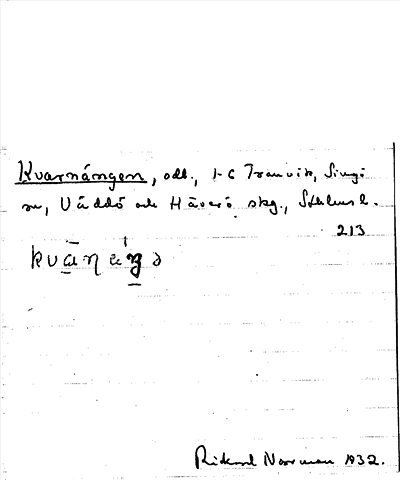 Kvarnängen, odl., 1-6 Tranvik, Singö
sn, Väddö och Häverö skg., Sthlms l.
213
kvaŋäŋə
Rickard Norrman 1932.